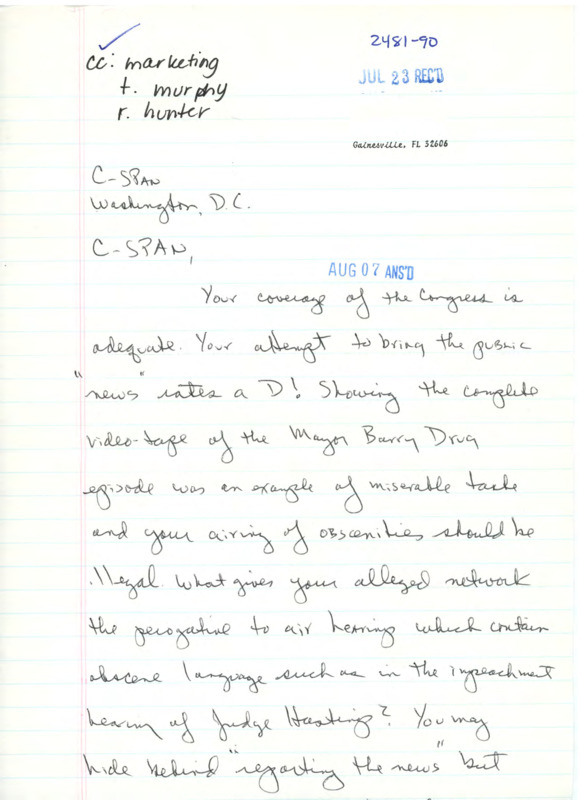 2481-90
cc: marketing
t. murphy
r. hunter
JUL 23 REC'D
Gainesville, FL 32606
C-SPAN
Washington, D.C.
C-SPAN,
AUG 07 ANS'D
Your coverage of the Congress is
adequate. Your attempt to bring the public
"news" rates a D! Showing the complete
video-tape of the Mayor Barry Drug
episode was an example of miserable taste
and your airing of obscenities should be
illegal. What gives your alleged network
the perogative to air hearing which contain
obscene language such as in the impeachment
hearing of Judge Hastings? You may
hide behind "reporting the news" but